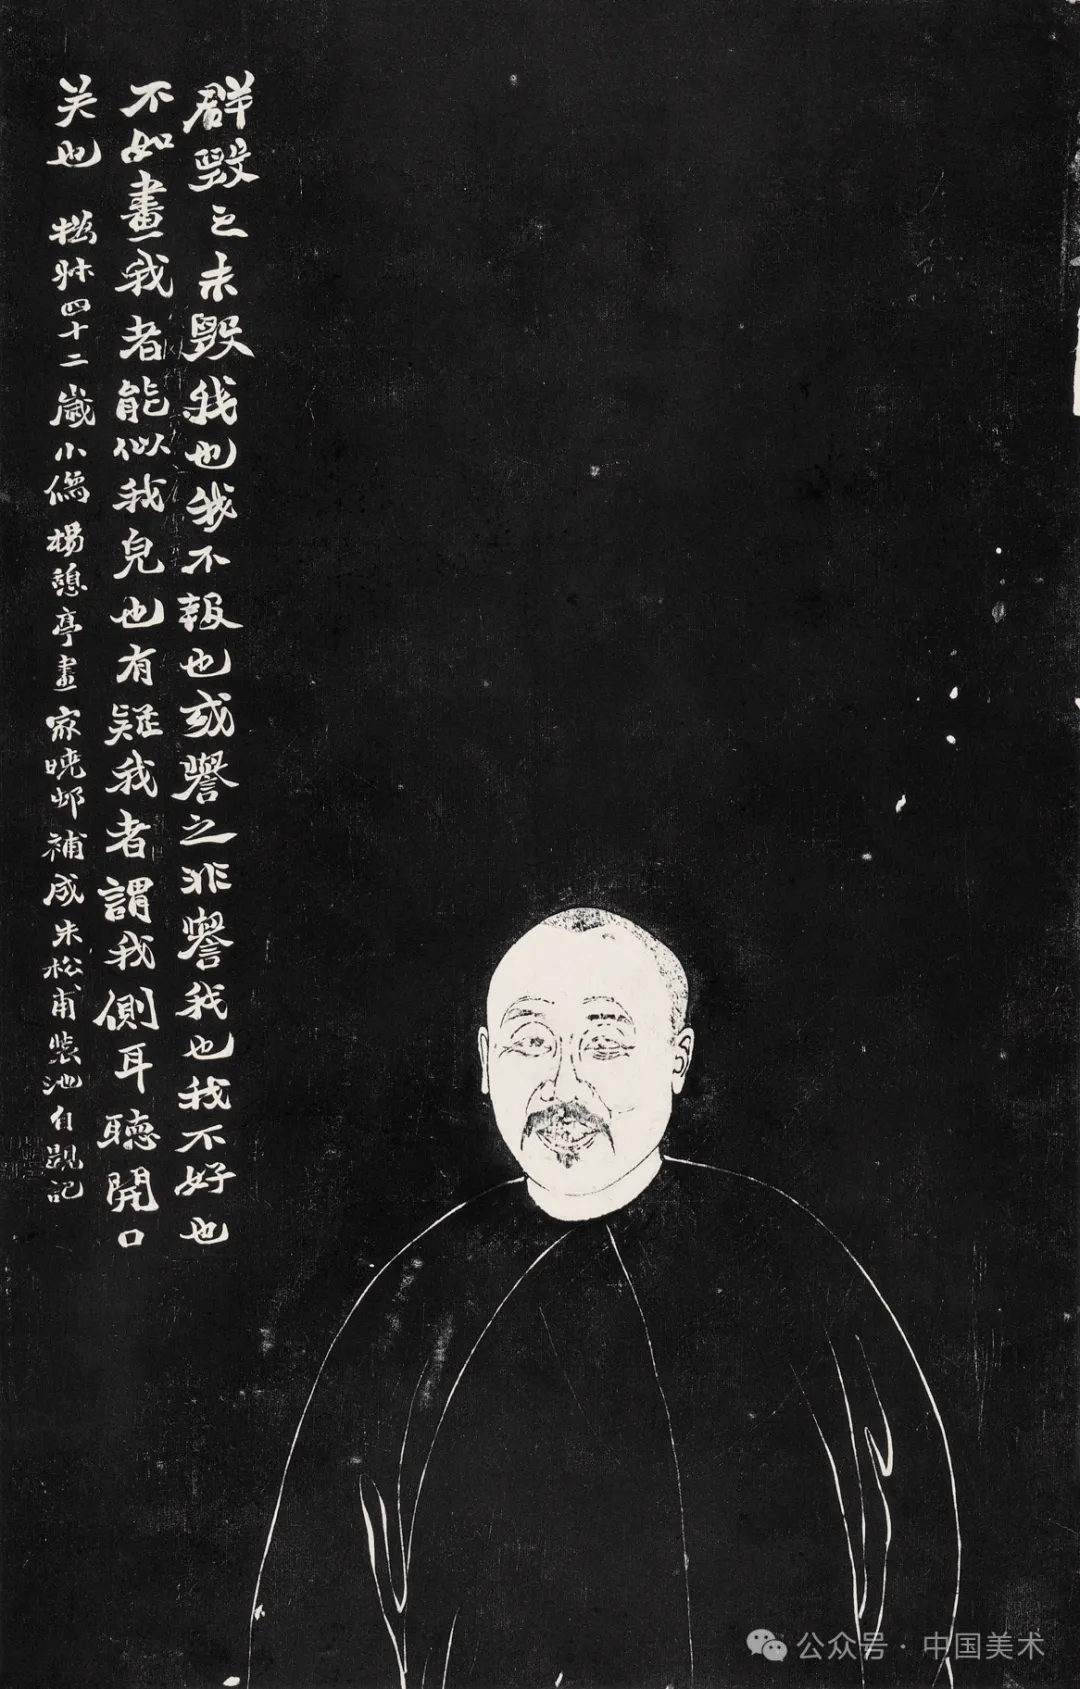 群毀之未毀我也我不報也或譽之非譽我也我不好也
不如畫我者能似我皃也有疑我者謂我側耳聽開口
关也
㧞叔四十二歲小像楊憩亭畫家曉邨補成朱松甫裝池自題記
公众号·中国美术